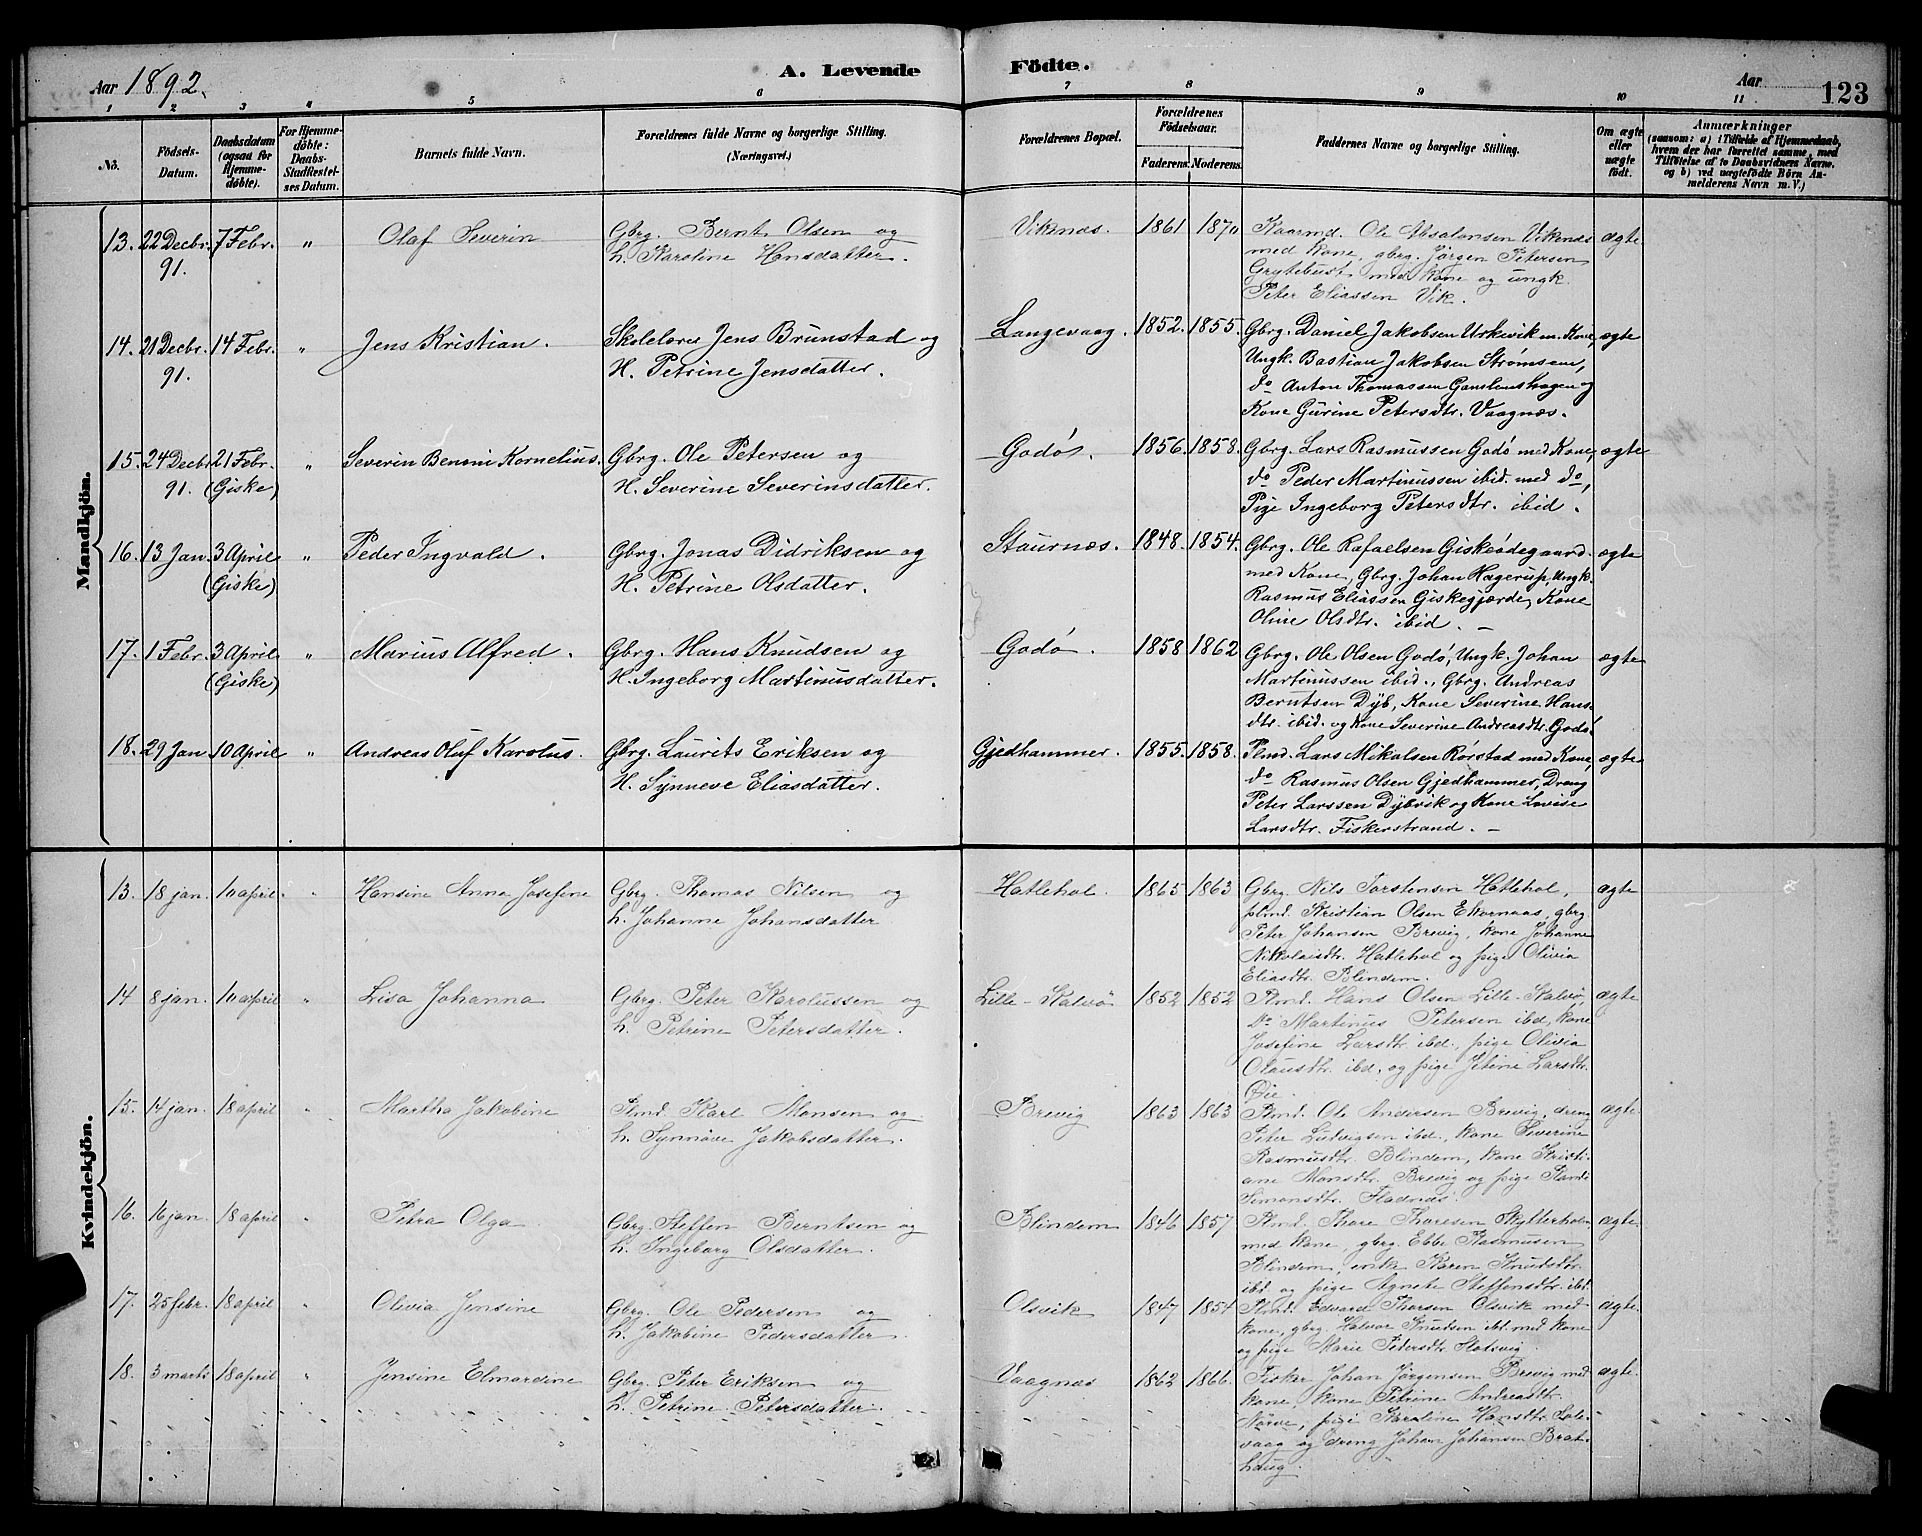 Aar 1892. A. Levende Födte. Aar 123
1 2 3 4 5 6 7 8 9 10 11
No. Födsels-Datum. Daabsdatum (ogsaa for Hjemmedöbte). For Hjemmedöbte: Daabs-Stadfæstelses Datum. Barnets fulde Navn. Forældrenes fulde Navne og borgerlige Stilling. (Næringsvei.) Forældrenes Bopæl. Forældrenes Födselsaar. Faderens. Moderens. Faddernes Navne og borgerlige Stilling. Om ægte eller uægte födt. Anmærkninger (saasom: a) i Tilfælde af Hjemmedaab, hvem der har forrettet samme, med Tilföielse af to Daabsvidners Navne. og b) ved uægtefödte Börn Anmelderens Navn m. V.)
Mandkjön.
13. 22 Decbr. 7 Febr. " Olaf Severin Gbrg. Bernt Olsen og Viksnæs. 1861 1870 Kaarmd. Ole Absalonsen Viksnæs ægte
91. h. Karoline Hansdatter. med kone, gbrg. Jørgen Petersen
Grytebust med kone og ungk.
Peter Eliassen Vik.
14. 21 Decbr. 14 Febr. " Jens Kristian. Skolelærer Jens Brunstad og Langevaag. 1852. 1855. Gbrg. Daniel Jakobsen Urkevik m. Kone, ægte
91. H. Petrine Jensdatter. Ungk. Bastian Jakobsen Strømsem,
do Anton Thomassen Gamlemshagen og
Kone Gurine Petersdtr. Vaagnæs.
15. 24 Decbr 21 Febr. " Severin Benoni Kornelius. Gbrg. Ole Petersen og Godø. 1856. 1858. Gbrg. Lars Rasmussen Godø med Kone, ægte
91. (Giske) H. Severine Severinsdatter. do Peder Martinussen ibid. med do,
Pige Ingeborg Petersdtr. ibid.
16. 13 Jan. 3 April " Peder Ingvald. Gbrg. Jonas Didriksen og Staurnæs. 1848. 1854. Gbrg. Ole Rafaelsen Giskeødegaard. ægte
(Giske) H. Petrine Olsdatter. med Kone, Gbrg. Johan Hagerup, Ungk.
Rasmus Eliassen Giskegjærde, Kone
Oline Olsdtr. ibid. –
17. 1 Febr. 3 April " Marius Alfred. Gbrg. Hans Knudsen og Godø. 1858 1862 Gbrg. Ole Olsen Godø, Ungk. Johan ægte
(Giske) H. Ingeborg Martinusdatter. Martinussen ibid., Gbrg. Andreas
Berntsen Dyb, Kone Severine Hans-
dtr. ibid. og Kone Severine Andreasdtr. Godø.
18. 29 Jan 10 April " Andreas Oluf Karolus. Gbrg. Laurits Eriksen og Gjedhammer. 1855. 1858. Plmd. Lars Mikalsen Rørstad med Kone, ægte
H. Synneve Eliasdatter. do Rasmus Olsen Gjedhammer, Dreng
Peter Larssen Dybvik og Kone Lovise
Larsdtr. Fiskerstrand. –
Kvindekjön.
13. 18 jan. 10 april. " Hansine Anna Josefine Gbrg. Thomas Nilsen og Hatlehol. 1865 1863 Gbrg. Nils Torstensen Hatlehol, ægte
h. Johanne Johansdatter plmd. Kristian Olsen Ekornaas, gbrg.
Peter Johansen Brevig, kone Johanne
Nikolaisdtr. Hatlehol og pige Olivia
Eliasdtr. Blindem.
14 8 jan. 10 april " Lisa Johanna Gbrg. Peter Karolussen og Lille-Kalvø 1852 1852 Plmd. Hans Olsen Lille-Kalvø, ægte
h. Petrine Petersdatter. do Martinus Petersen ibd, kone
Josefine Larsdtr. ibd., pige Olivia
Olausdtr. ibd. og pige Jetine Larsdtr.
Øie.
15. 14 jan. 18 april " Martha Jakobine Plmd. Karl Monsen og Brevig 1863 1863 Plmd. Ole Andersen Brevig, dreng ægte
h. Synnøve Jakobsdatter. Peter Ludvigsen ibd., kone Severine
Rasmusdtr. Blindem, kone Kristi-
ane Monsdtr. Brevig og pige
Simonsdtr. Fladnæs.
16. 16 jan. 18 april " Petra Olga Gbrg. Steffen Berntsen og Blindem 1846 1857 Plmd. Thore Thoresen Skytterholm ægte
h. Ingeborg Olsdatter. med kone, gbrg. Ebbe Rasmusen
Blindem, enke Karen Knudsdtr.
ibd. og pige Agnete Steffensdtr. ibd.
17. 25 febr. 18 april " Olivia Jensine Gbrg. Ole Pedersen og Olsvik 1847 1854 Plmd. Edvard Thorsen Olsvik med ægte
h. Jakobine Pedersdatter kone, gbrg. Halvor Knudsen ibd. med kone
og pige Marie Petersdtr.
18. 3 marts 18 april " Jensine Elmardine Gbrg. Peter Eriksen og Vaagnæs 1862 1866. Fisker Johan Jørgensen Brevig med ægte.
h. Petrine Petersdatter. kone, kone Petrine Andreasdtr.
Nørve, pige Karoline Hansdtr. Sole-
vaag og dreng Johan Johansen Brat-
haug.